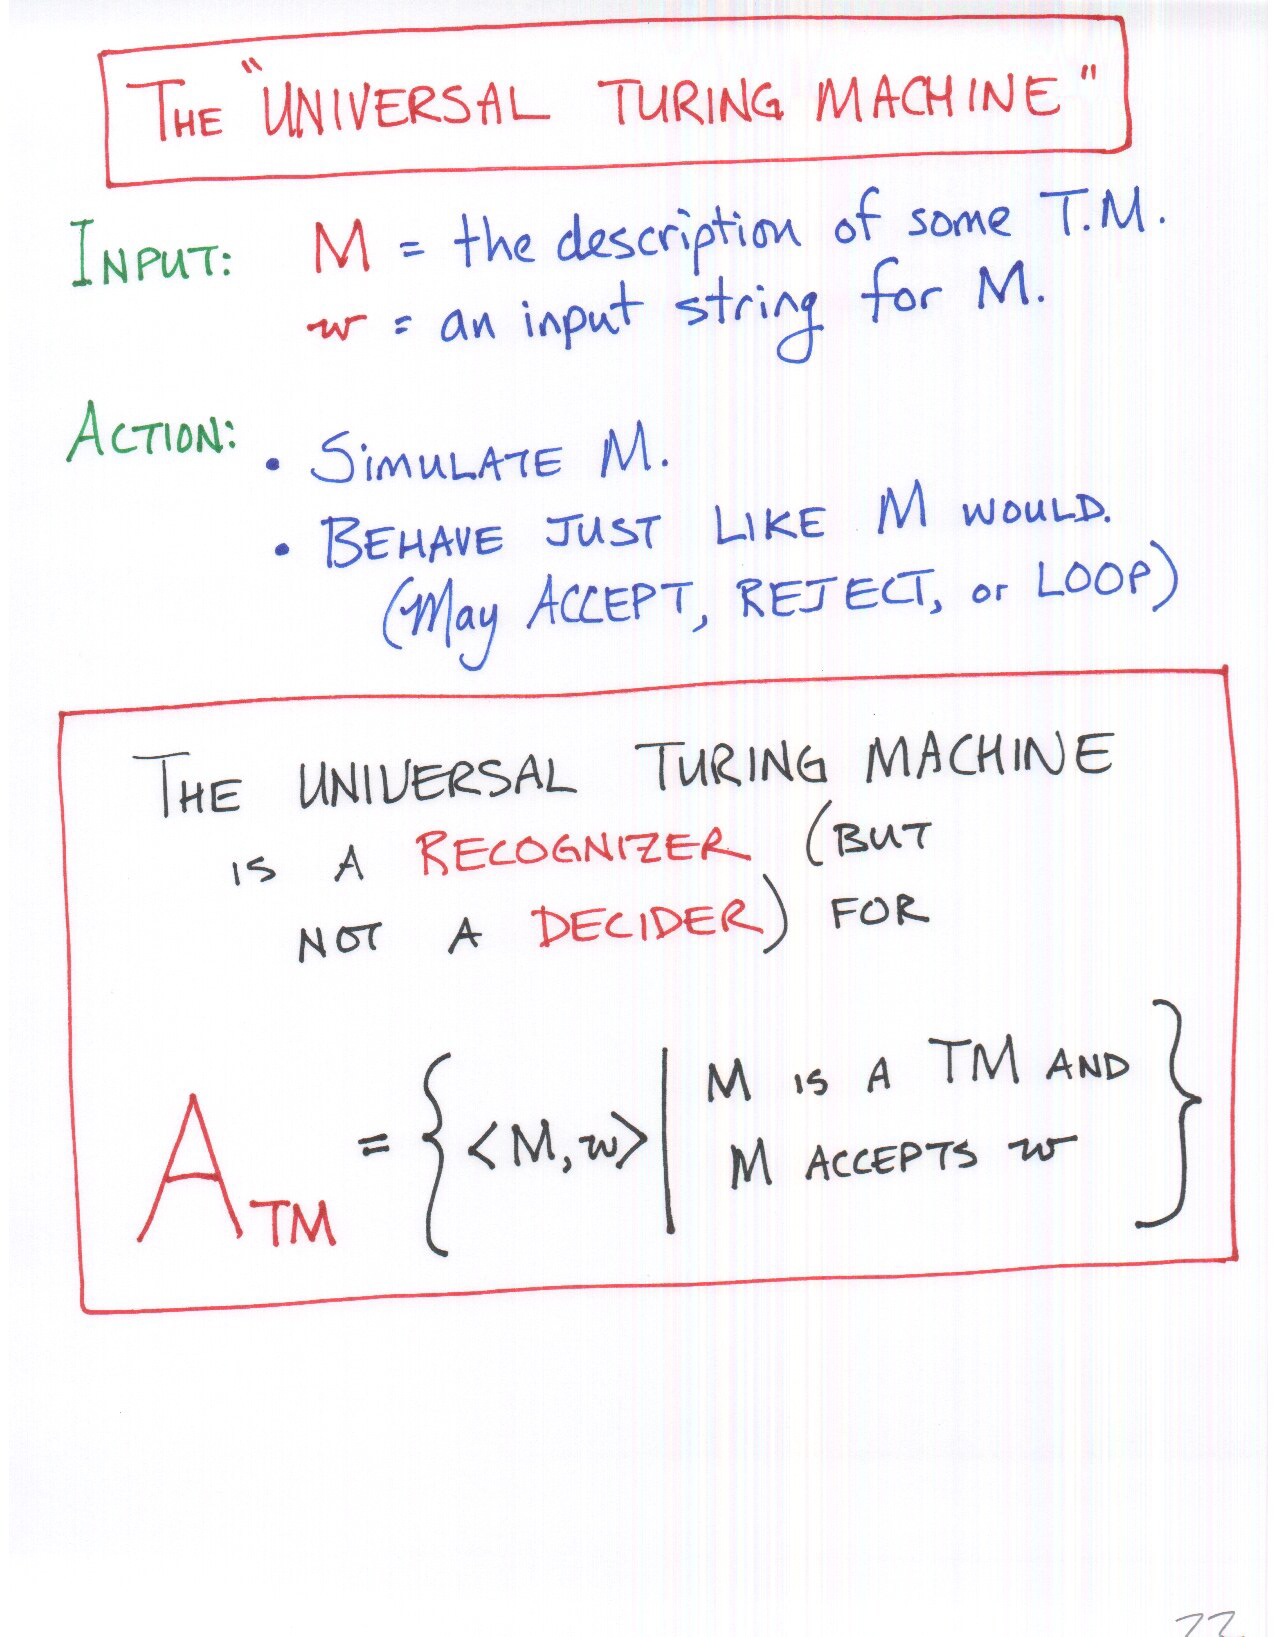 THE "UNIVERSAL TURING MACHINE"
INPUT: M = the description of some T.M.
w = an input string for M.
ACTION: • SIMULATE M.
• BEHAVE JUST LIKE M WOULD.
(May ACCEPT, REJECT, or LOOP)
THE UNIVERSAL TURING MACHINE
IS A RECOGNIZER (BUT
NOT A DECIDER) FOR
A_TM = { <M, w> | M IS A TM AND
M ACCEPTS w }